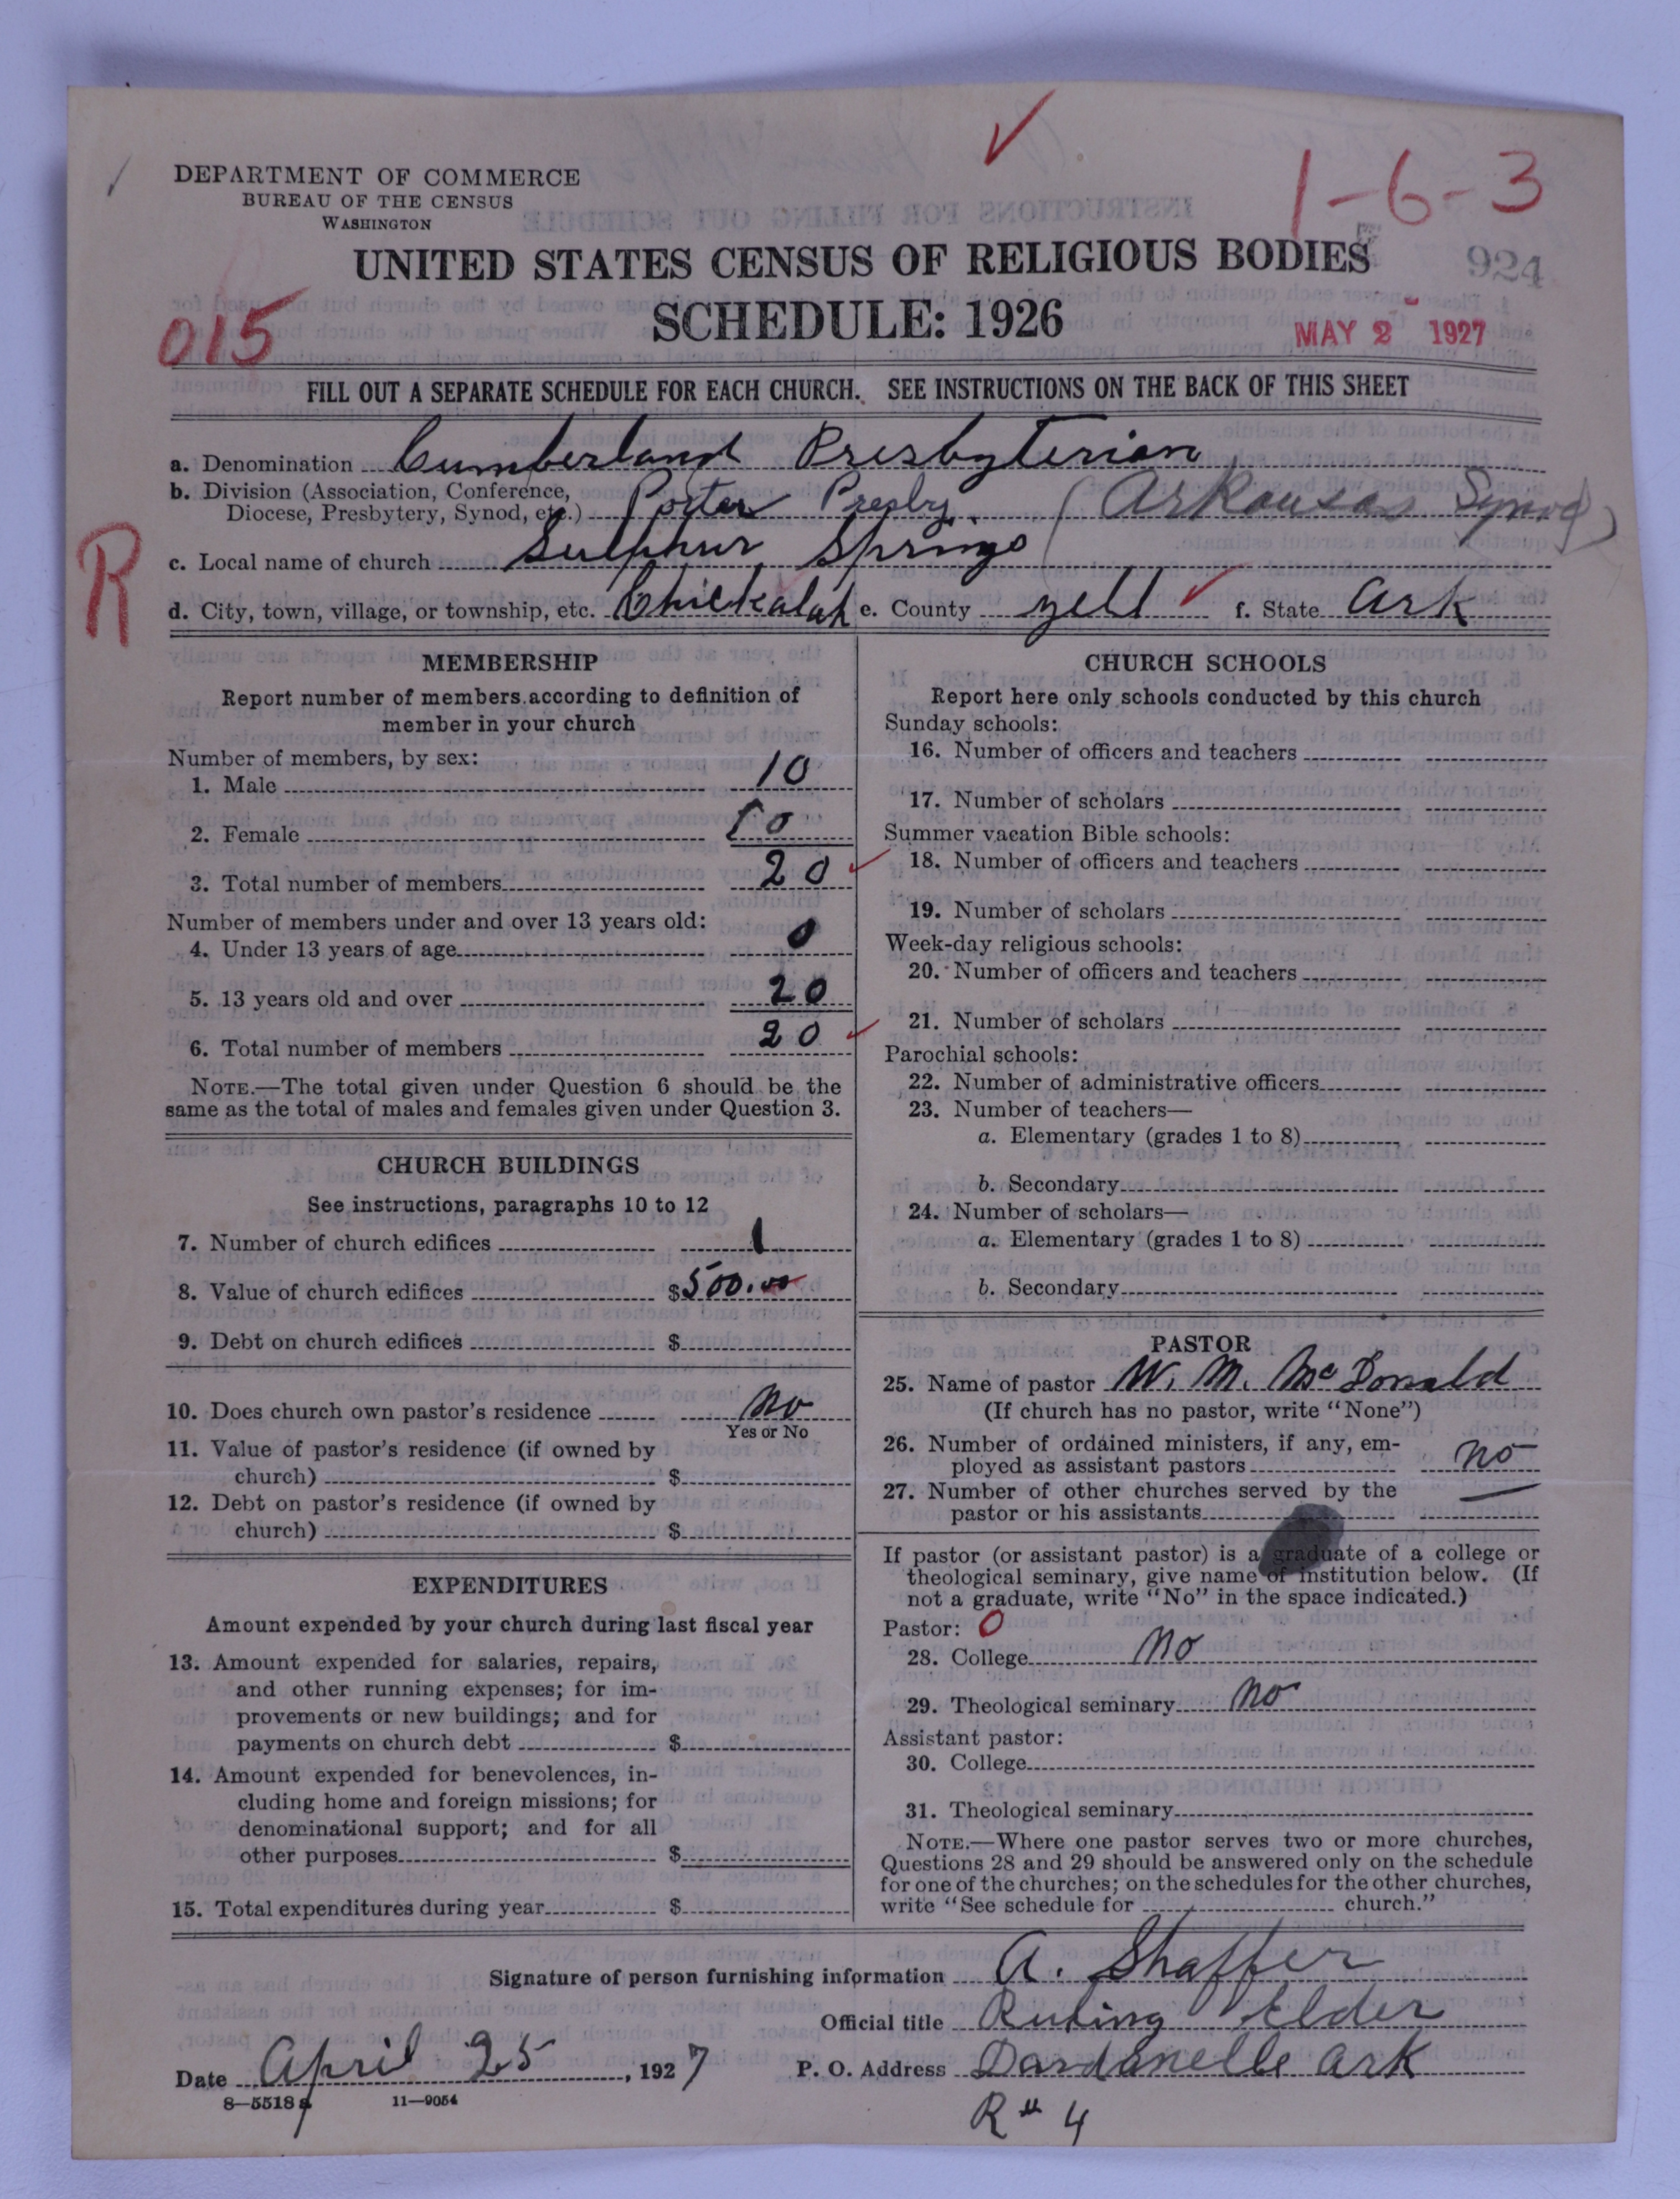 1-6-3
DEPARTMENT OF COMMERCE
BUREAU OF THE CENSUS
WASHINGTON
UNITED STATES CENSUS OF RELIGIOUS BODIES
924
SCHEDULE: 1926
015
MAY 2 1927
FILL OUT A SEPARATE SCHEDULE FOR EACH CHURCH. SEE INSTRUCTIONS ON THE BACK OF THIS SHEET
a. Denomination Cumberland Presbyterian
b. Division (Association, Conference, Diocese, Presbytery, Synod, etc.) Porter Presby. (Arkansas Synod)
R
c. Local name of church Sulphur Springs
d. City, town, village, or township, etc. Chickalah e. County Yell f. State Ark
MEMBERSHIP
Report number of members according to definition of
member in your church
Number of members, by sex:
1. Male 10
2. Female 10
3. Total number of members 20
Number of members under and over 13 years old:
4. Under 13 years of age 0
5. 13 years old and over 20
6. Total number of members 20
NOTE.—The total given under Question 6 should be the
same as the total of males and females given under Question 3.
CHURCH BUILDINGS
See instructions, paragraphs 10 to 12
7. Number of church edifices 1
8. Value of church edifices $500.00
9. Debt on church edifices $
10. Does church own pastor's residence No
Yes or No
11. Value of pastor's residence (if owned by
church) $
12. Debt on pastor's residence (if owned by
church) $
EXPENDITURES
Amount expended by your church during last fiscal year
13. Amount expended for salaries, repairs,
and other running expenses; for im-
provements or new buildings; and for
payments on church debt $
14. Amount expended for benevolences, in-
cluding home and foreign missions; for
denominational support; and for all
other purposes $
15. Total expenditures during year $
CHURCH SCHOOLS
Report here only schools conducted by this church
Sunday schools:
16. Number of officers and teachers
17. Number of scholars
Summer vacation Bible schools:
18. Number of officers and teachers
19. Number of scholars
Week-day religious schools:
20. Number of officers and teachers
21. Number of scholars
Parochial schools:
22. Number of administrative officers
23. Number of teachers—
a. Elementary (grades 1 to 8)
b. Secondary
24. Number of scholars—
a. Elementary (grades 1 to 8)
b. Secondary
PASTOR
25. Name of pastor W. M. McDonald
(If church has no pastor, write "None")
26. Number of ordained ministers, if any, em-
ployed as assistant pastors No
27. Number of other churches served by the
pastor or his assistants —
If pastor (or assistant pastor) is a graduate of a college or
theological seminary, give name of institution below. (If
not a graduate, write "No" in the space indicated.)
Pastor: 0
28. College No
29. Theological seminary No
Assistant pastor:
30. College
31. Theological seminary
NOTE.—Where one pastor serves two or more churches,
Questions 28 and 29 should be answered only on the schedule
for one of the churches; on the schedules for the other churches,
write "See schedule for church."
Signature of person furnishing information A. Shaffer
Official title Ruling Elder
Date April 25, 1927 P. O. Address Dardanelle Ark
8—5518 a 11—9054
R # 4